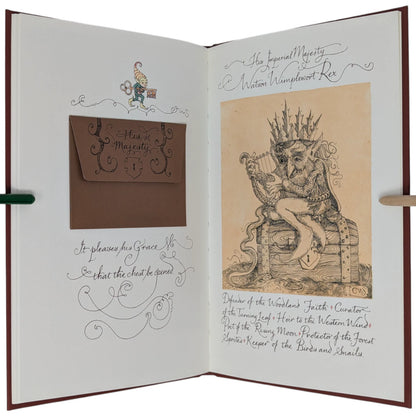 His
Majesty
It pleases his Grace
that the chest be opened
His Imperial Majesty
Watson Wimplewort Rex
Defender of the Woodland Faith + Curator
of the Turning Leaf + Heir to the Western Wind +
Poet of the Rising Moon + Protector of the Forest
Sprites + Keeper of the Birds and Snails